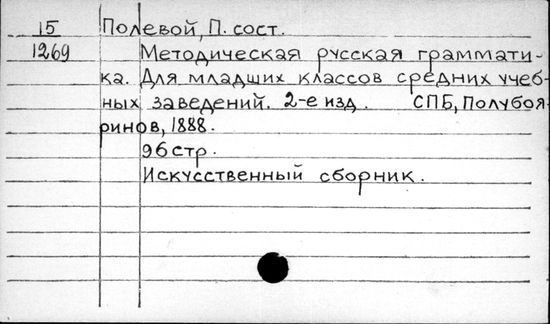 15 Полевой, П. сост.
1269 Методическая русская граммати-
ка. Для младших классов средних учеб-
ных заведений. 2-е изд. СПБ, Полубоя-
ринов, 1888.
96 стр.
Искусственный сборник.